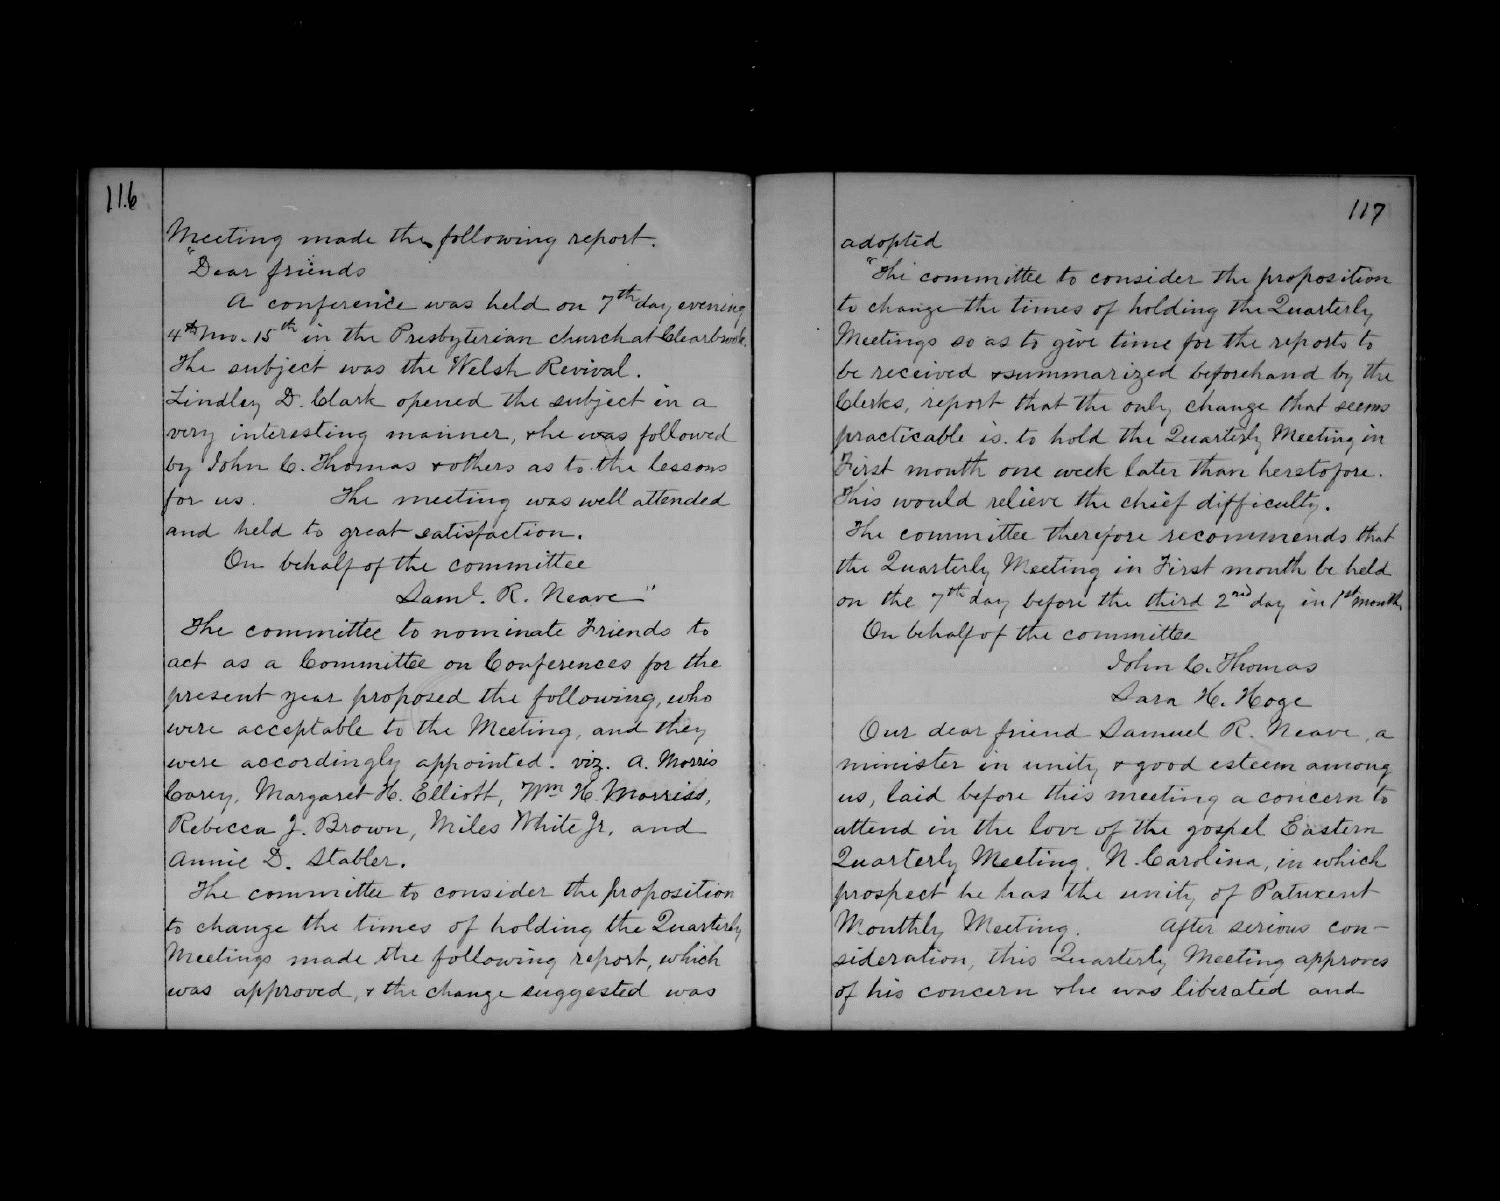 116
Meeting made the following report.
"Dear friends
A conference was held on 7th day evening
4th Mo. 15th in the Presbyterian church at Clearbrook.
The subject was the Welsh Revival.
Lindley D. Clark opened the subject in a
very interesting manner, & he was followed
by John C. Thomas & others as to the lessons
for us. The meeting was well attended
and held to great satisfaction.
On behalf of the committee
Saml. R. Neave"
The committee to nominate Friends to
act as a Committee on Conferences for the
present year proposed the following, who
were acceptable to the Meeting, and they
were accordingly appointed. viz. A. Morris
Carey, Margaret H. Elliott, Wm H. Morriss,
Rebecca J. Brown, Miles White Jr. and
Annie D. Stabler.
The committee to consider the proposition
to change the times of holding the Quarterly
Meetings made the following report, which
was approved, & the change suggested was
117
adopted
"The committee to consider the proposition
to change the times of holding the Quarterly
Meetings so as to give time for the reports to
be received & summarized beforehand by the
Clerks, report that the only change that seems
practicable is. to hold the Quarterly Meeting in
First month one week later than heretofore.
This would relieve the chief difficulty.
The committee therefore recommends that
the Quarterly Meeting in First month be held
on the 7th day before the third 2nd day in 1st month
On behalf of the committee
John C. Thomas
Sara H. Hoge
Our dear friend Samuel R. Neave, a
minister in unity & good esteem among
us, laid before this meeting a concern to
attend in the love of the gospel Eastern
Quarterly Meeting, N. Carolina, in which
prospect he has the unity of Patuxent
Monthly Meeting. After serious con-
sideration, this Quarterly Meeting approves
of his concern & he was liberated and